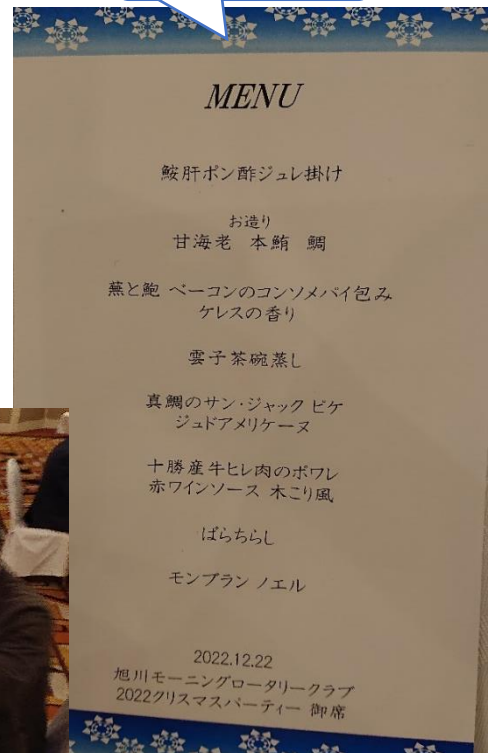 MENU
鮟肝ポン酢ジュレ掛け
お造り
甘海老 本鮪 鯛
蕪と鮑 ベーコンのコンソメパイ包み
ケレスの香り
雲子茶碗蒸し
真鯛のサン・ジャック ピケ
ジュドアメリケーヌ
十勝産牛ヒレ肉のポワレ
赤ワインソース 木こり風
ばらちらし
モンブラン ノエル
2022.12.22
旭川モーニングロータリークラブ
2022クリスマスパーティー 御席